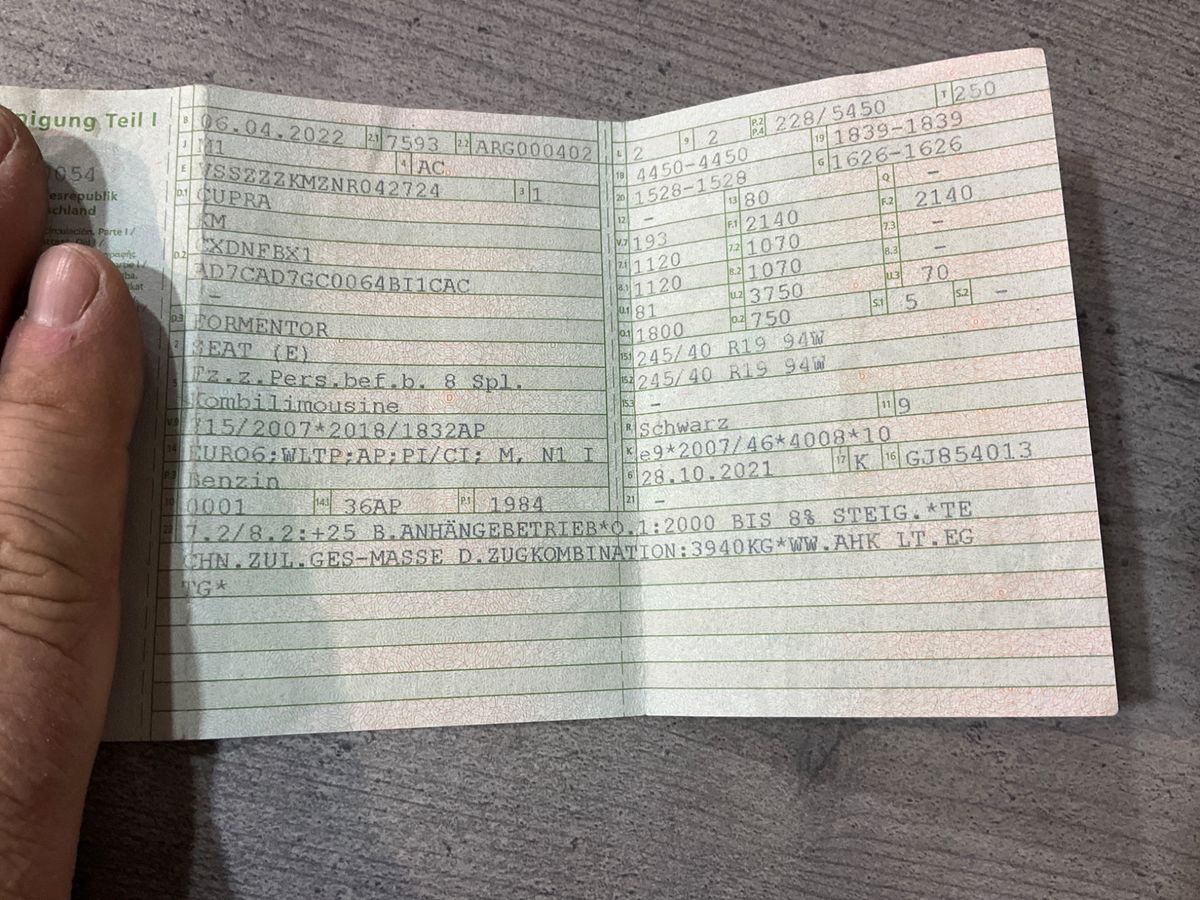 nigung Teil I
054
esrepublik
schland
B 06.04.2022 2.1 7593 2.2 ARG000402
J M1 4 AC
E VSSZZZKMZNR042724 3 1
D.1 CUPRA
KM
D.2 CXDNFBX1
AD7CAD7GC0064BI1CAC
–
D.3 FORMENTOR
2 SEAT (E)
5 Fz.z.Pers.bef.b. 8 Spl.
Kombilimousine
V.9 715/2007*2018/1832AP
14 EURO6;WLTP;AP;PI/CI; M, N1 I
P.3 Benzin
10 0001 14.1 36AP P.1 1984
L 2 9 2 P.2 P.4 228/5450 T 250
18 4450-4450 19 1839-1839
20 1528-1528 G 1626-1626
12 – 13 80 Q –
V.7 193 F.1 2140 F.2 2140
7.1 1120 7.2 1070 7.3 –
8.1 1120 8.2 1070 8.3 –
U.1 81 U.2 3750 U.3 70
O.1 1800 O.2 750 S.1 5 S.2 –
15.1 245/40 R19 94W
15.2 245/40 R19 94W
15.3 –
R Schwarz 11 9
K e9*2007/46*4008*10
6 28.10.2021 17 K 16 GJ854013
21 –
22 7.2/8.2:+25 B.ANHÄNGEBETRIEB*O.1:2000 BIS 8% STEIG.*TE
CHN.ZUL.GES-MASSE D.ZUGKOMBINATION:3940KG*WW.AHK LT.EG
TG*